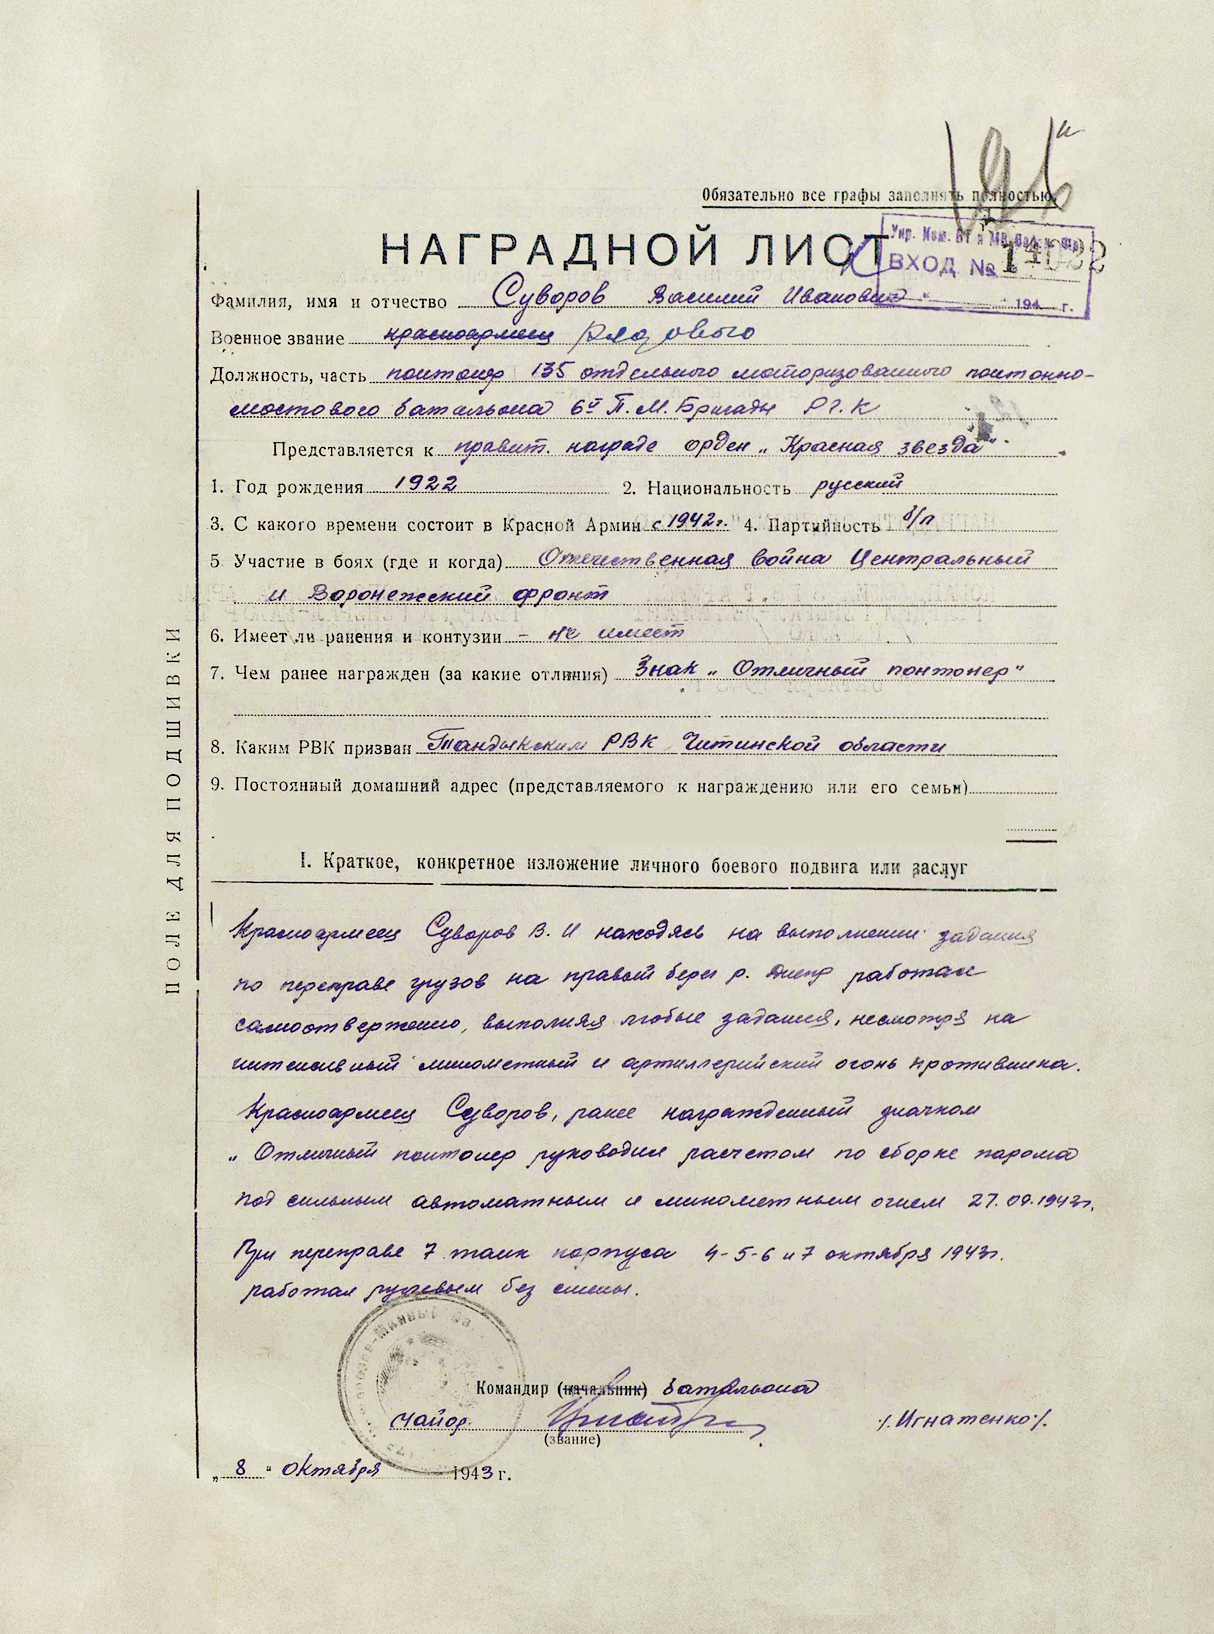 Обязательно все графы заполнять полностью
НАГРАДНОЙ ЛИСТ
ВХОД № 14022
194 г.
Фамилия, имя и отчество Суворов Василий Иванович
Военное звание красноармеец рядового
Должность, часть понтонер 135 отдельного моторизованного понтонно-
мостового батальона 6й П.М. Бригады РГК
Представляется к правит. награде орден „Красная звезда"
1. Год рождения 1922 2. Национальность русский
3. С какого времени состоит в Красной Армии с 1942г. 4. Партийность б/п
5 Участие в боях (где и когда) Отечественная война Центральный
и Воронежский фронт
6. Имеет ли ранения и контузии – не имеет
7. Чем ранее награжден (за какие отличия) Знак „Отличный понтонер"
8. Каким РВК призван РВК Читинской области
9. Постоянный домашний адрес (представляемого к награждению или его семьи)
ПОЛЕ ДЛЯ ПОДШИВКИ
I. Краткое, конкретное изложение личного боевого подвига или заслуг
Красноармеец Суворов В. И находясь на выполнении задания
по переправе грузов на правый берег р. Днепр работал
самоотверженно, выполняя любые задания, несмотря на
интенсивный минометный и артиллерийский огонь противника.
Красноармеец Суворов, ранее награжденный значком
„Отличный понтонер руководил расчетом по сборке парома
под сильным автоматным и минометным огнем 27.09.1943г.
При переправе 7 танк корпуса 4-5-6 и 7 октября 1943г.
работал рулевым без смены.
Командир (начальник) батальона
майор /Игнатенко/.
(звание)
„8" октября 1943 г.